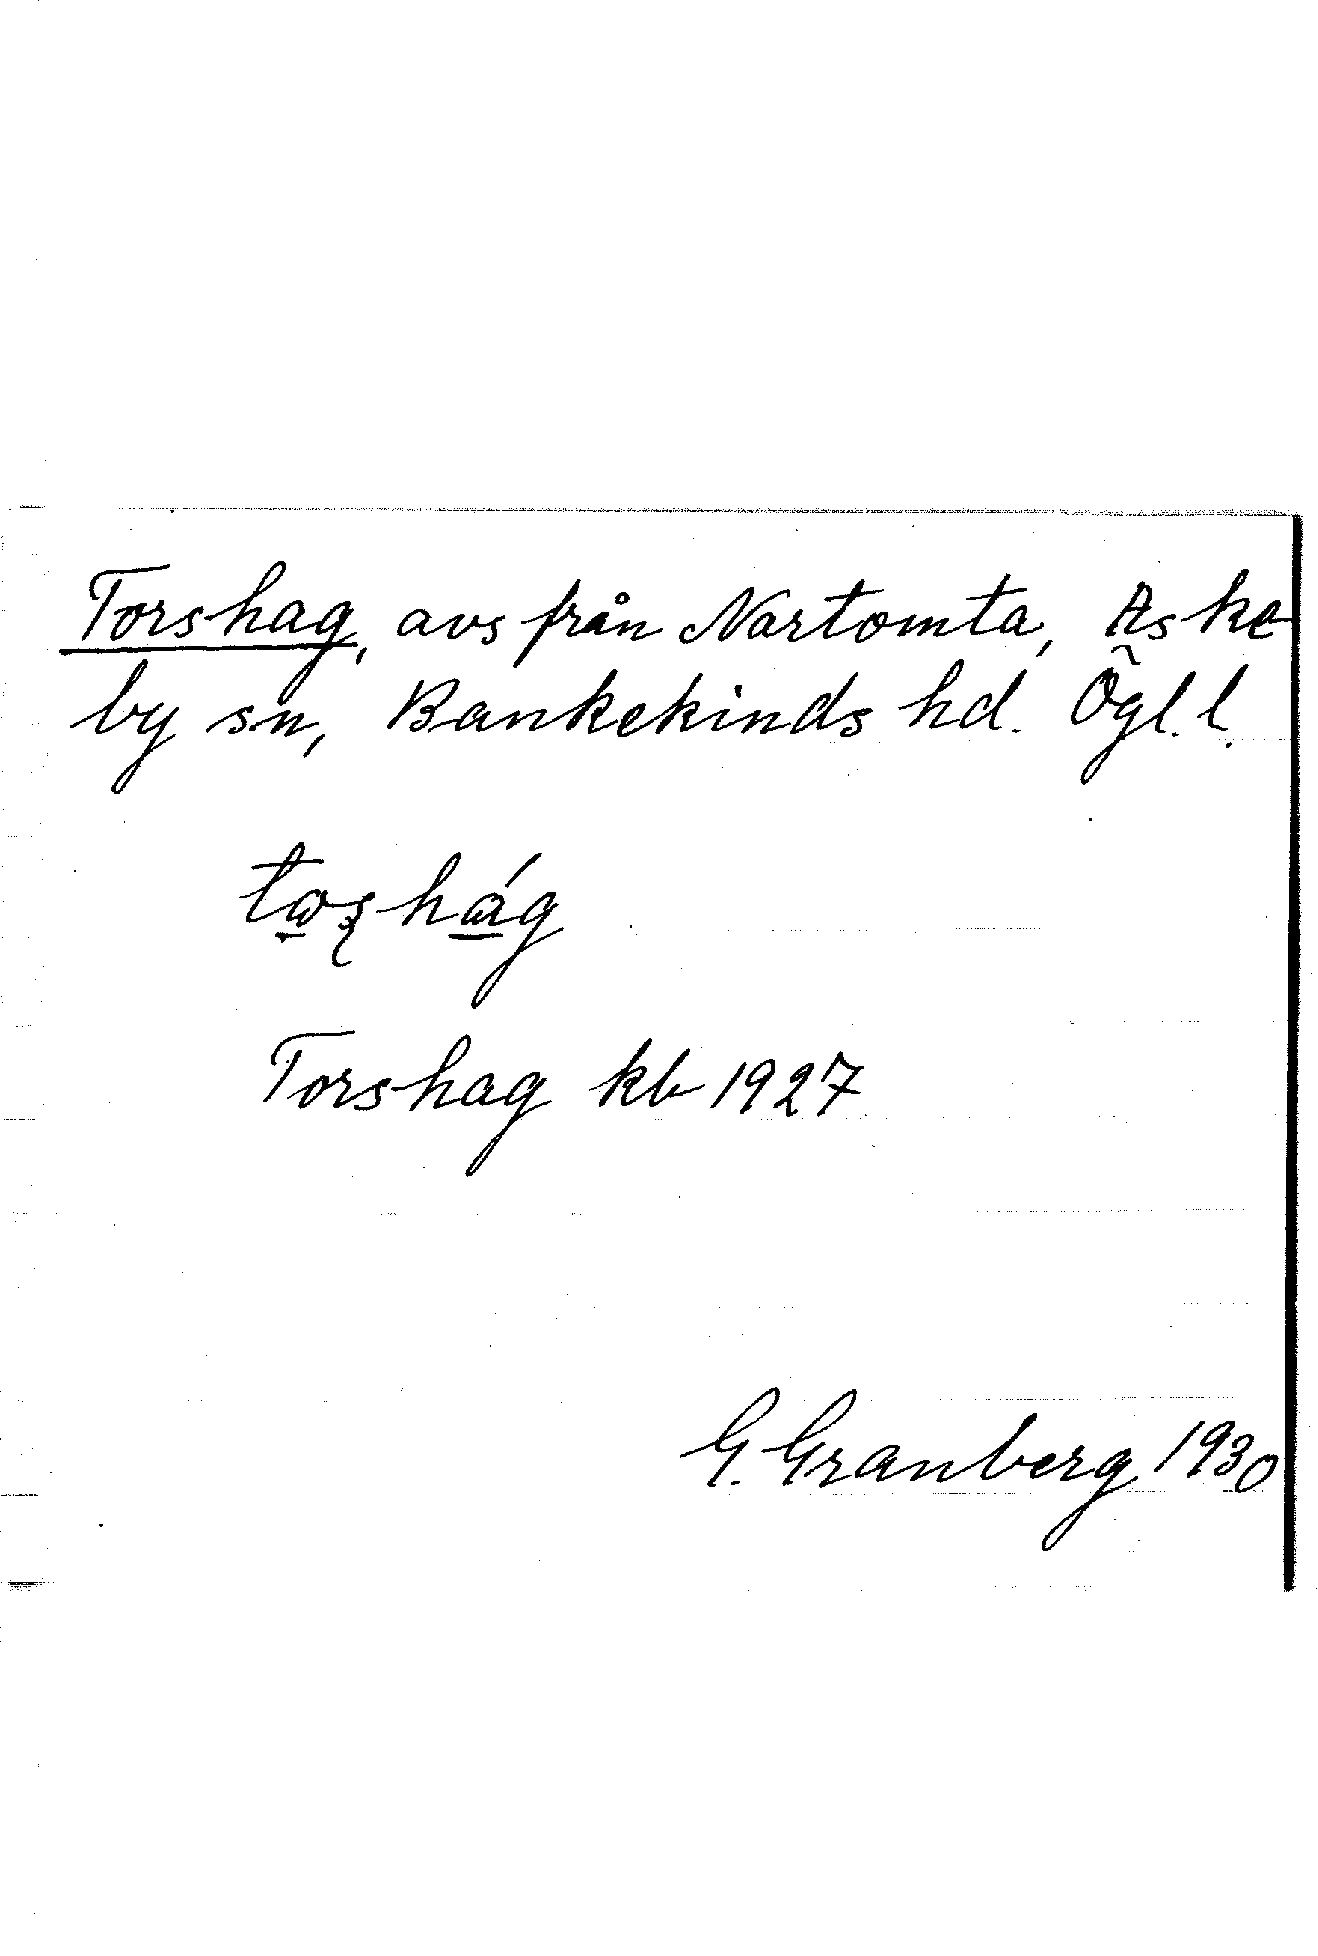 Torshag, avs från Nartomta, Aske
by sn, Bankekinds hd. Ögl. l.
Torshag kb 1927
G. Granberg 1930